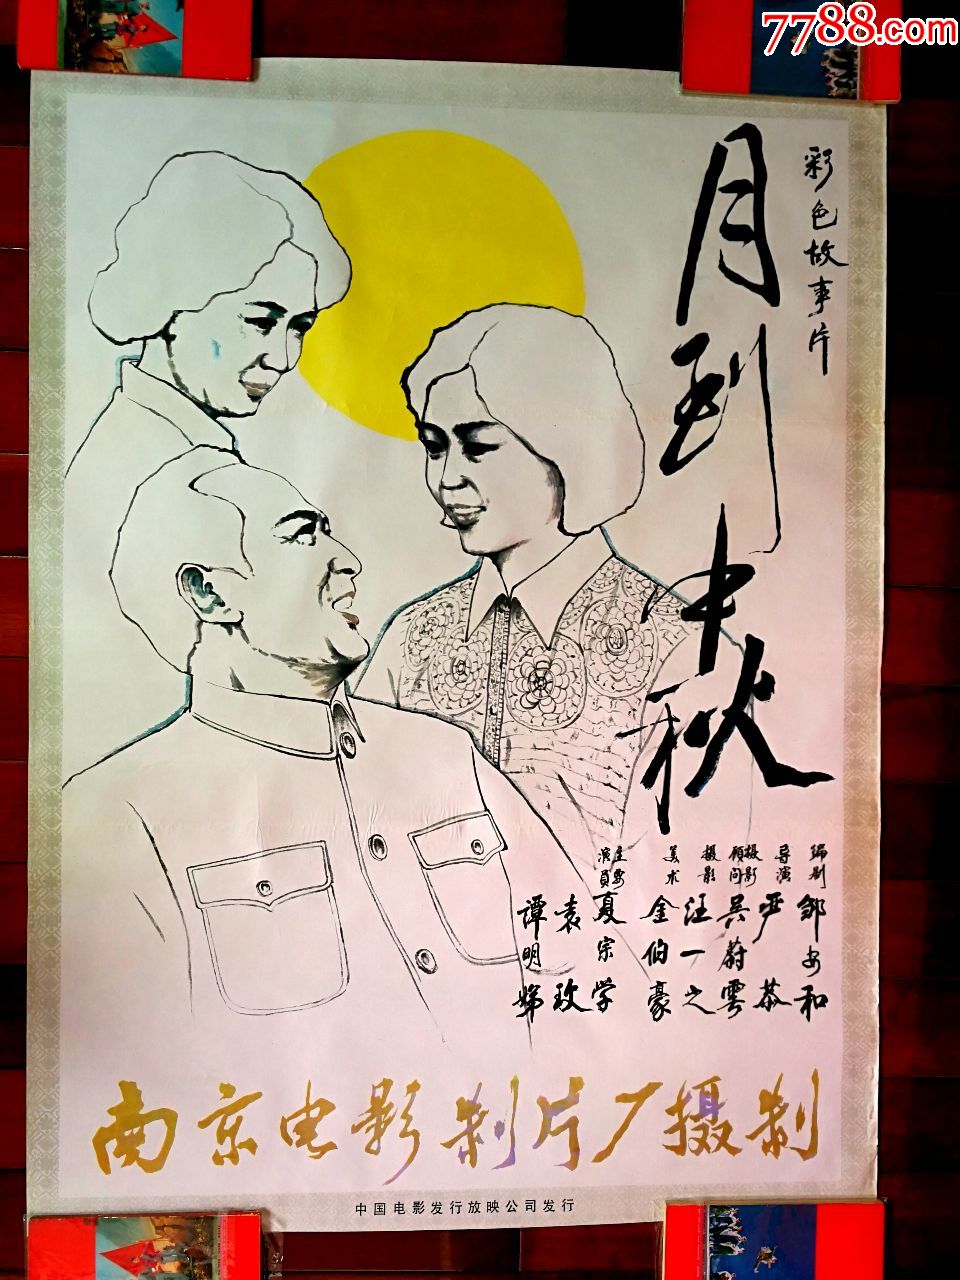 7788.com
彩色故事片
月到中秋
编剧 邹安和
导演 严恭
摄影顾问 吴蔚雲
摄影 汪一之
美术 金伯豪
主要演員 夏宗学
袁玫
谭明娣
南京电影制片厂摄制
中国电影发行放映公司发行